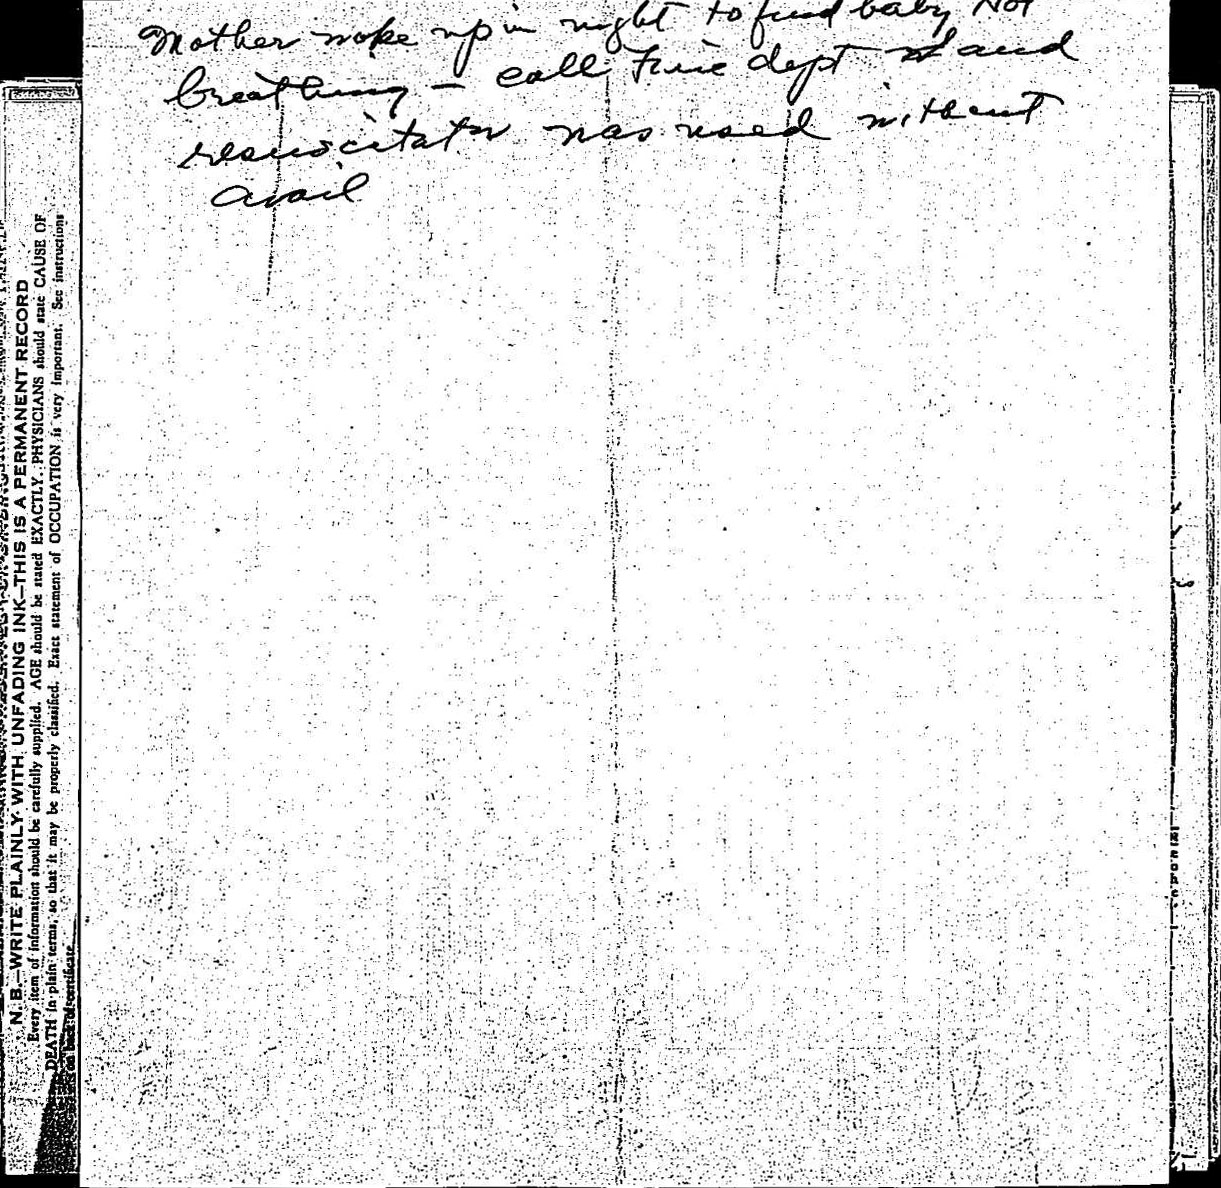 Mother woke up in night to find baby Not
breathing - call Fire dept and
resuscitator was used without
avail
N. B.—WRITE PLAINLY WITH UNFADING INK—THIS IS A PERMANENT RECORD
Every item of information should be carefully supplied. AGE should be stated EXACTLY. PHYSICIANS should state CAUSE OF
DEATH in plain terms, so that it may be properly classified. Exact statement of OCCUPATION is very important. See instructions
on back of certificate.